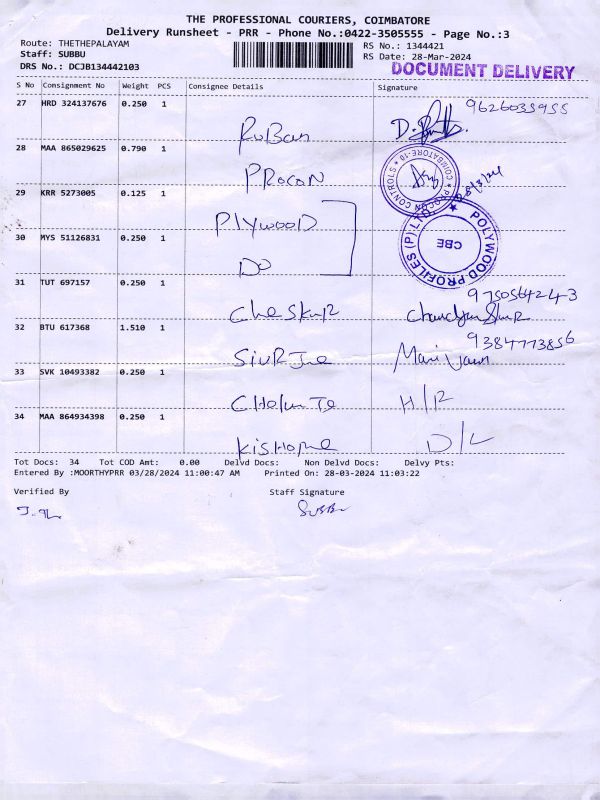 THE PROFESSIONAL COURIERS, COIMBATORE
Delivery Runsheet - PRR - Phone No.:0422-3505555 - Page No.:3
Route: THETHEPALAYAM RS No.: 1344421
Staff: SUBBU RS Date: 28-Mar-2024
DRS No.: DCJB134442103 DOCUMENT DELIVERY
S No Consignment No Weight PCS Consignee Details Signature
27 HRD 324137676 0.250 1 9626033955
RuBan
28 MAA 865029625 0.790 1
PRocoN PROCON CONTROLS COIMBATORE-10
29 KRR 5273005 0.125 1
PlywooD POLYWOOD PROFILES (P) LTD. CBE
30 MYS 51126831 0.250 1
Do
31 TUT 697157 0.250 1 9750564243
32 BTU 617368 1.510 1 9384773856
33 SVK 10493382 0.250 1
H/R
34 MAA 864934398 0.250 1
D/L
Tot Docs: 34 Tot COD Amt: 0.00 Delvd Docs: Non Delvd Docs: Delvy Pts:
Entered By :MOORTHYPRR 03/28/2024 11:00:47 AM Printed On: 28-03-2024 11:03:22
Verified By Staff Signature
SUBBU